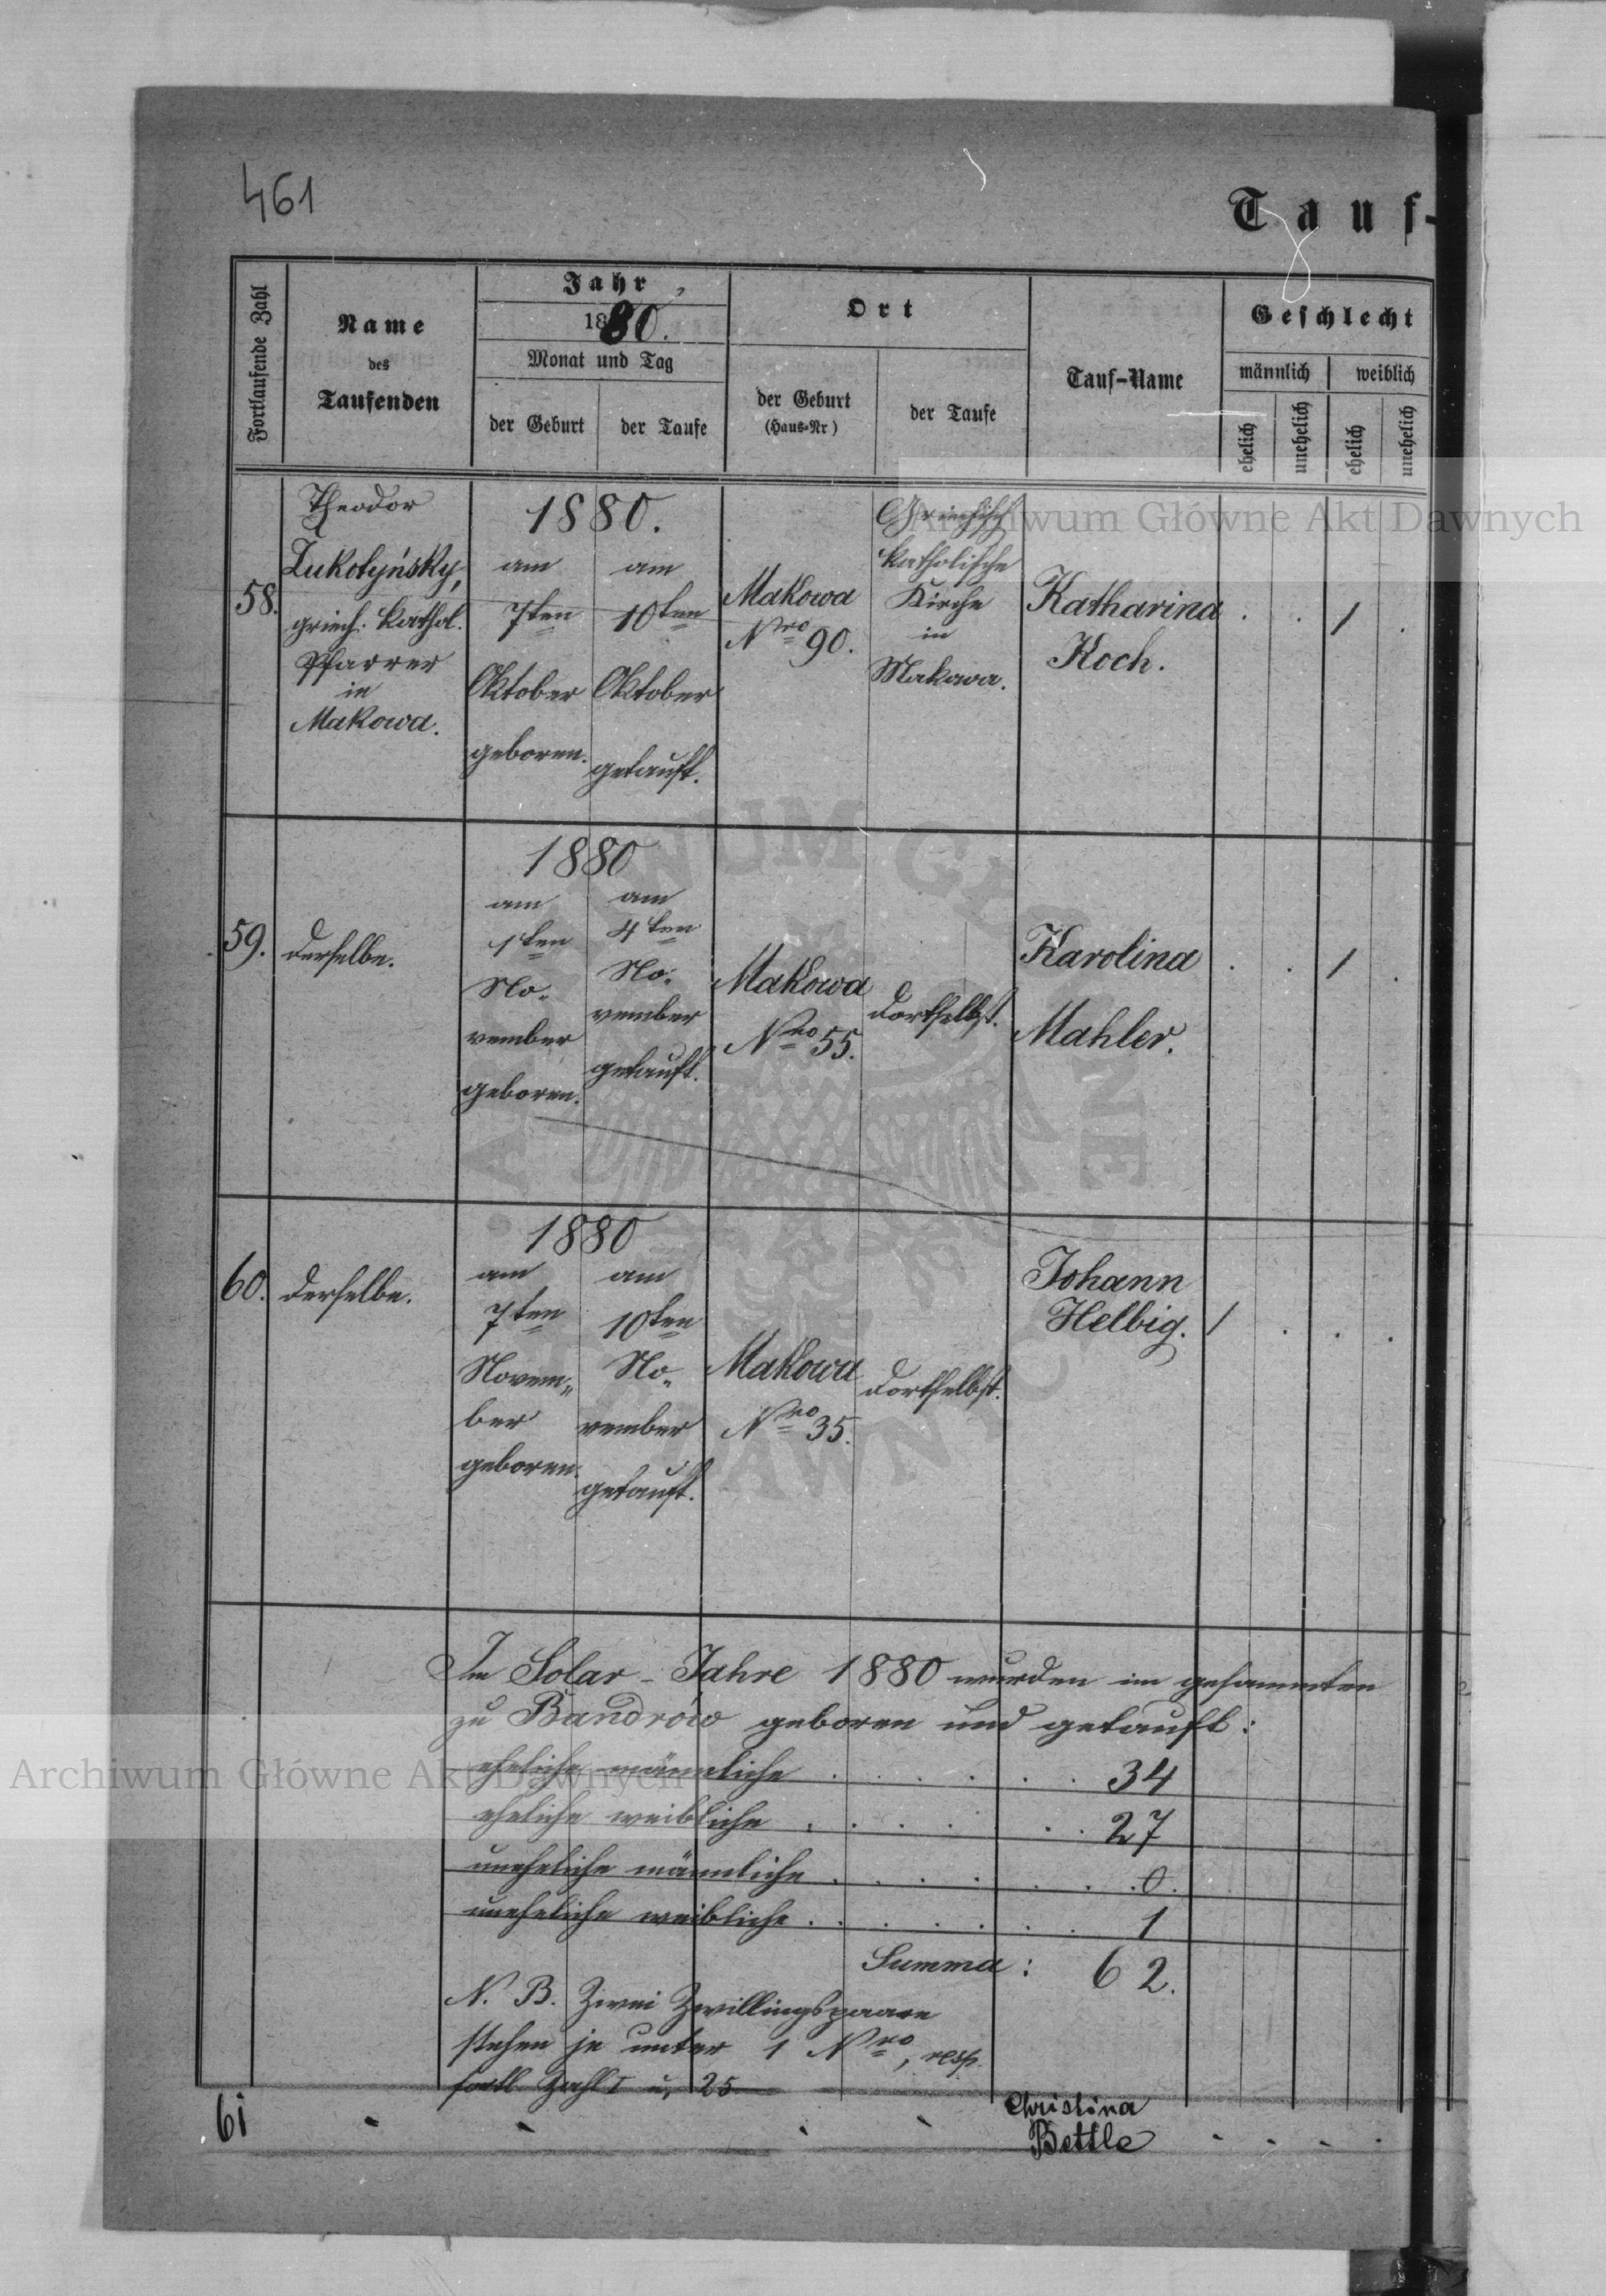 461
Tauf-
Fortlaufende Zahl
Name
des
Taufenden
Jahr
1880.
Monat und Tag
der Geburt
der Taufe
Ort
der Geburt
(Haus-Nr)
der Taufe
Tauf-Name
Geschlecht
männlich
weiblich
ehelich
unehelich
ehelich
unehelich
58.
Theodor
Lukotyńsky,
griech. kathol.
Pfarrer
in
Makowa.
1880.
am
7ten
Oktober
geboren.
am
10ten
Oktober
getauft.
Makowa
Nro 90.
Griechisch
katholische
Kirche
in
Makowa.
Katharina
Koch.
. . 1 .
59.
derselbe.
1880
am
1ten
No-
vember
geboren.
am
4ten
No-
vember
getauft.
Makowa
Nro 55.
dortselbst.
Karolina
Mahler.
. . 1 .
60.
derselbe.
1880
am
7ten
Novem-
ber
geboren.
am
10ten
No-
vember
getauft.
Makowa
Nro 35.
dortselbst.
Johann
Helbig.
1 . . .
Im Solar-Jahre 1880 wurden im gesammten
zu Bandrów geboren und getauft:
eheliche männliche . . . . . . 34
eheliche weibliche . . . . . . 27
uneheliche männliche . . . . . . 0.
uneheliche weibliche . . . . . . 1
Summa: 62.
N. B. Zwei Zwillingspaare
stehen je unter 1 Nro, resp.
fortl. Zahl I u. 25.
61
Christina
Bettle
Archiwum Główne Akt Dawnych
Archiwum Główne Akt Dawnych
ARCHIWUM GŁÓWNE AKT DAWNYCH